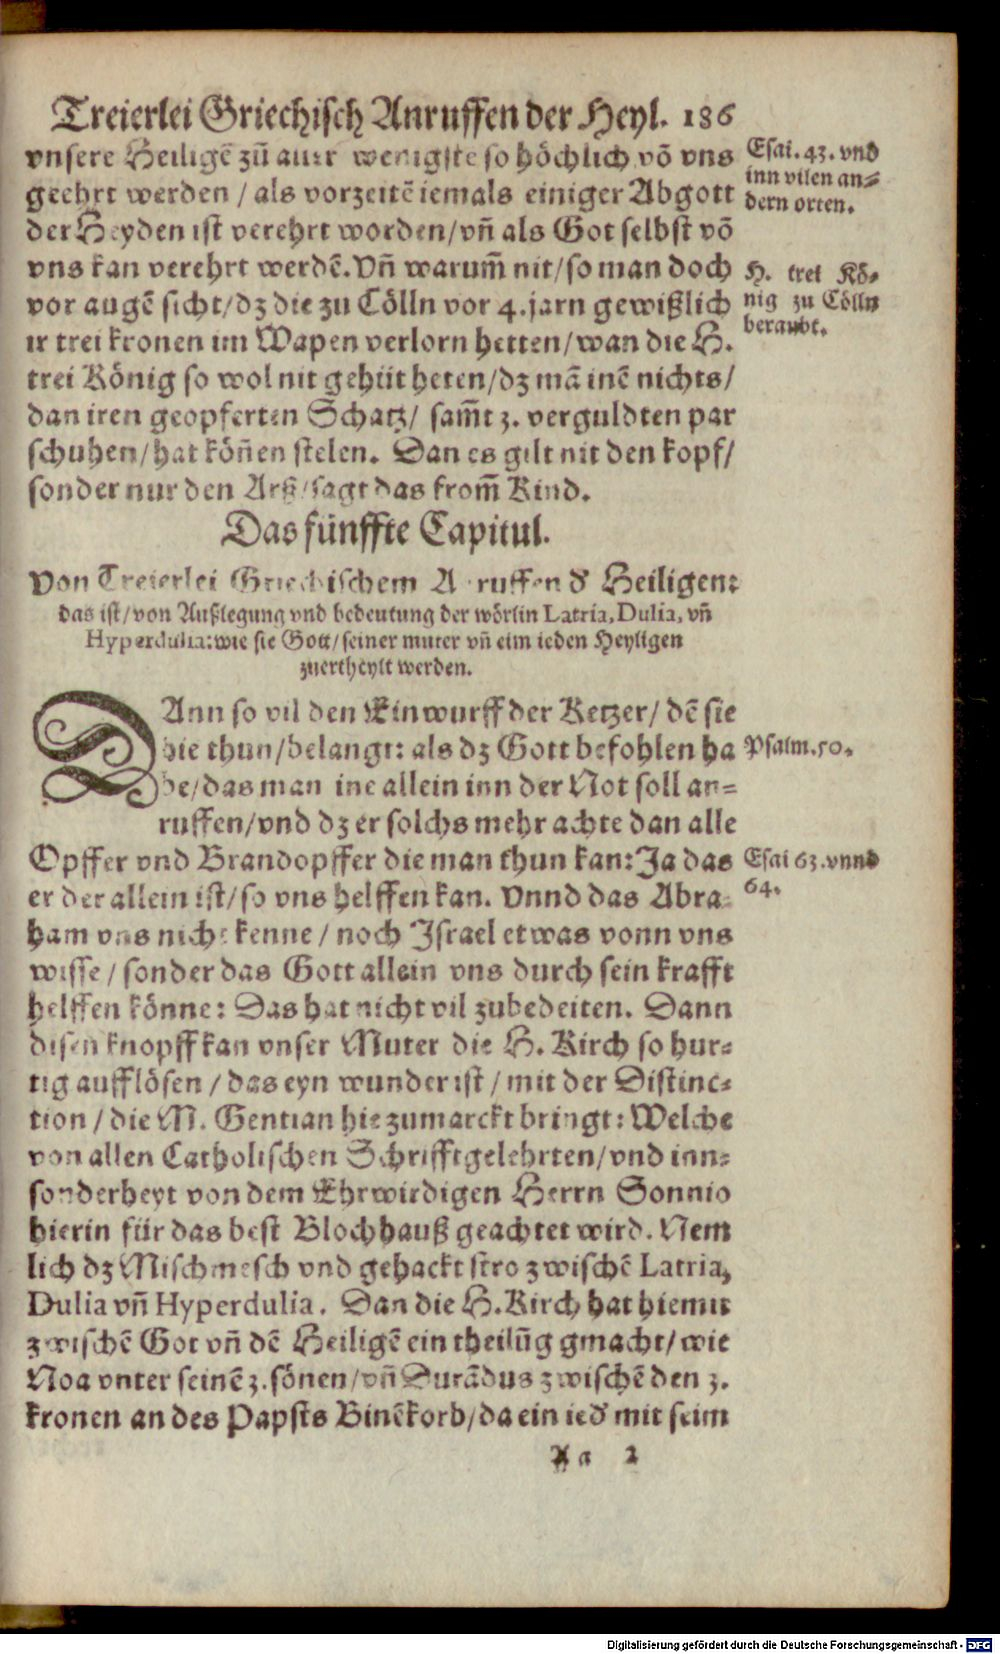 Treierlei Griechisch Anruffen der Heyl. 186
vnsere Heiligē zū aller wenigste so höchlich vō vns
geehrt werden / als vorzeitē iemals einiger Abgott
der Heyden ist verehrt worden/vn̄ als Got selbst vō
vns kan verehrt werdē. Vn̄ warum̄ nit/so man doch
vor augē sicht/dz die zu Cölln vor 4.jarn gewißlich
ir trei kronen im Wapen verlorn hetten/wan die H.
trei König so wol nit gehüt heten/dz mā inē nichts/
dan iren geopferten Schatz/ sam̄t 3. verguldten par
schuhen/hat kön̄en stelen. Dan es gilt nit den kopf/
sonder nur den Arß/sagt das from̄ Kind.
Esai. 43. vnd
inn vilen an=
dern orten.
H. trei Kö=
nig zu Cölln
beraubt.
Das fünffte Capitul.
Von Treierlei Griechischem Anruffen d' Heiligen:
das ist/von Außlegung vnd bedeutung der wörlin Latria, Dulia, vn̄
Hyperdulia: wie sie Gott/seiner muter vn̄ eim ieden Heyligen
zuertheylt werden.
DAnn so vil den Einwurff der Ketzer/ dē sie
hie thun/belangt: als dz Gott befohlen ha
be/das man ine allein inn der Not soll an=
ruffen/vnd dz er solchs mehr achte dan alle
Opffer vnd Brandopffer die man thun kan: Ja das
er der allein ist/so vns helffen kan. Vnnd das Abra=
ham vns nicht kenne / noch Israel etwas vonn vns
wisse / sonder das Gott allein vns durch sein krafft
helffen könne: Das hat nicht vil zubedeiten. Dann
disen knopff kan vnser Muter die H. Kirch so hur=
tig aufflösen / das eyn wunder ist / mit der Distinc=
tion / die M. Gentian hie zumarckt bringt: Welche
von allen Catholischen Schrifftgelehrten/vnd inn=
sonderheyt von dem Ehrwirdigen Herrn Sonnio
hierin für das best Blochhauß geachtet wird. Nem
lich dz Mischmesch vnd gehackt stro zwischē Latria,
Dulia vn̄ Hyperdulia. Dan die H. Kirch hat hiemit
zwischē Got vn̄ dē Heiligē ein theilūg gmacht/ wie
Noa vnter seinē 3. sönen/vn̄ Durādus zwischē den 3.
kronen an des Papsts Binēkorb/da ein ied' mit seim
Psalm. 50.
Esai 63. vnnd
64.
Aa 2
Digitalisierung gefördert durch die Deutsche Forschungsgemeinschaft - DFG